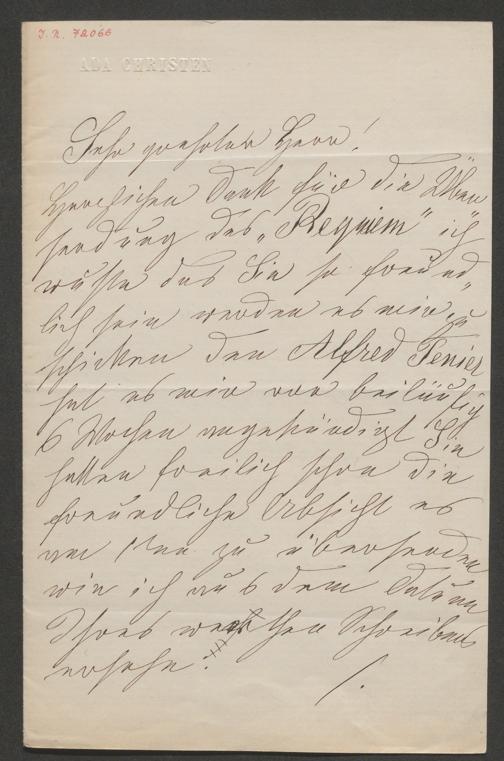 I. N. 72066
ADA CHRISTEN
Sehr geehrter Herr!
Herzlichen Dank für die Über
sendung des „Requiem" ich
wußte das Sie so freund„
lich sein werden es mir zu
schicken den Alfred Tenier
hat es mir vor beiläufig
6 Wochen angekündigt Sie
hatten freilich schon die
freundliche Absicht es
am 1ten zu übersenden
wie ich aus dem Datum
Ihres werthen Schreibens
ersehe.
/.